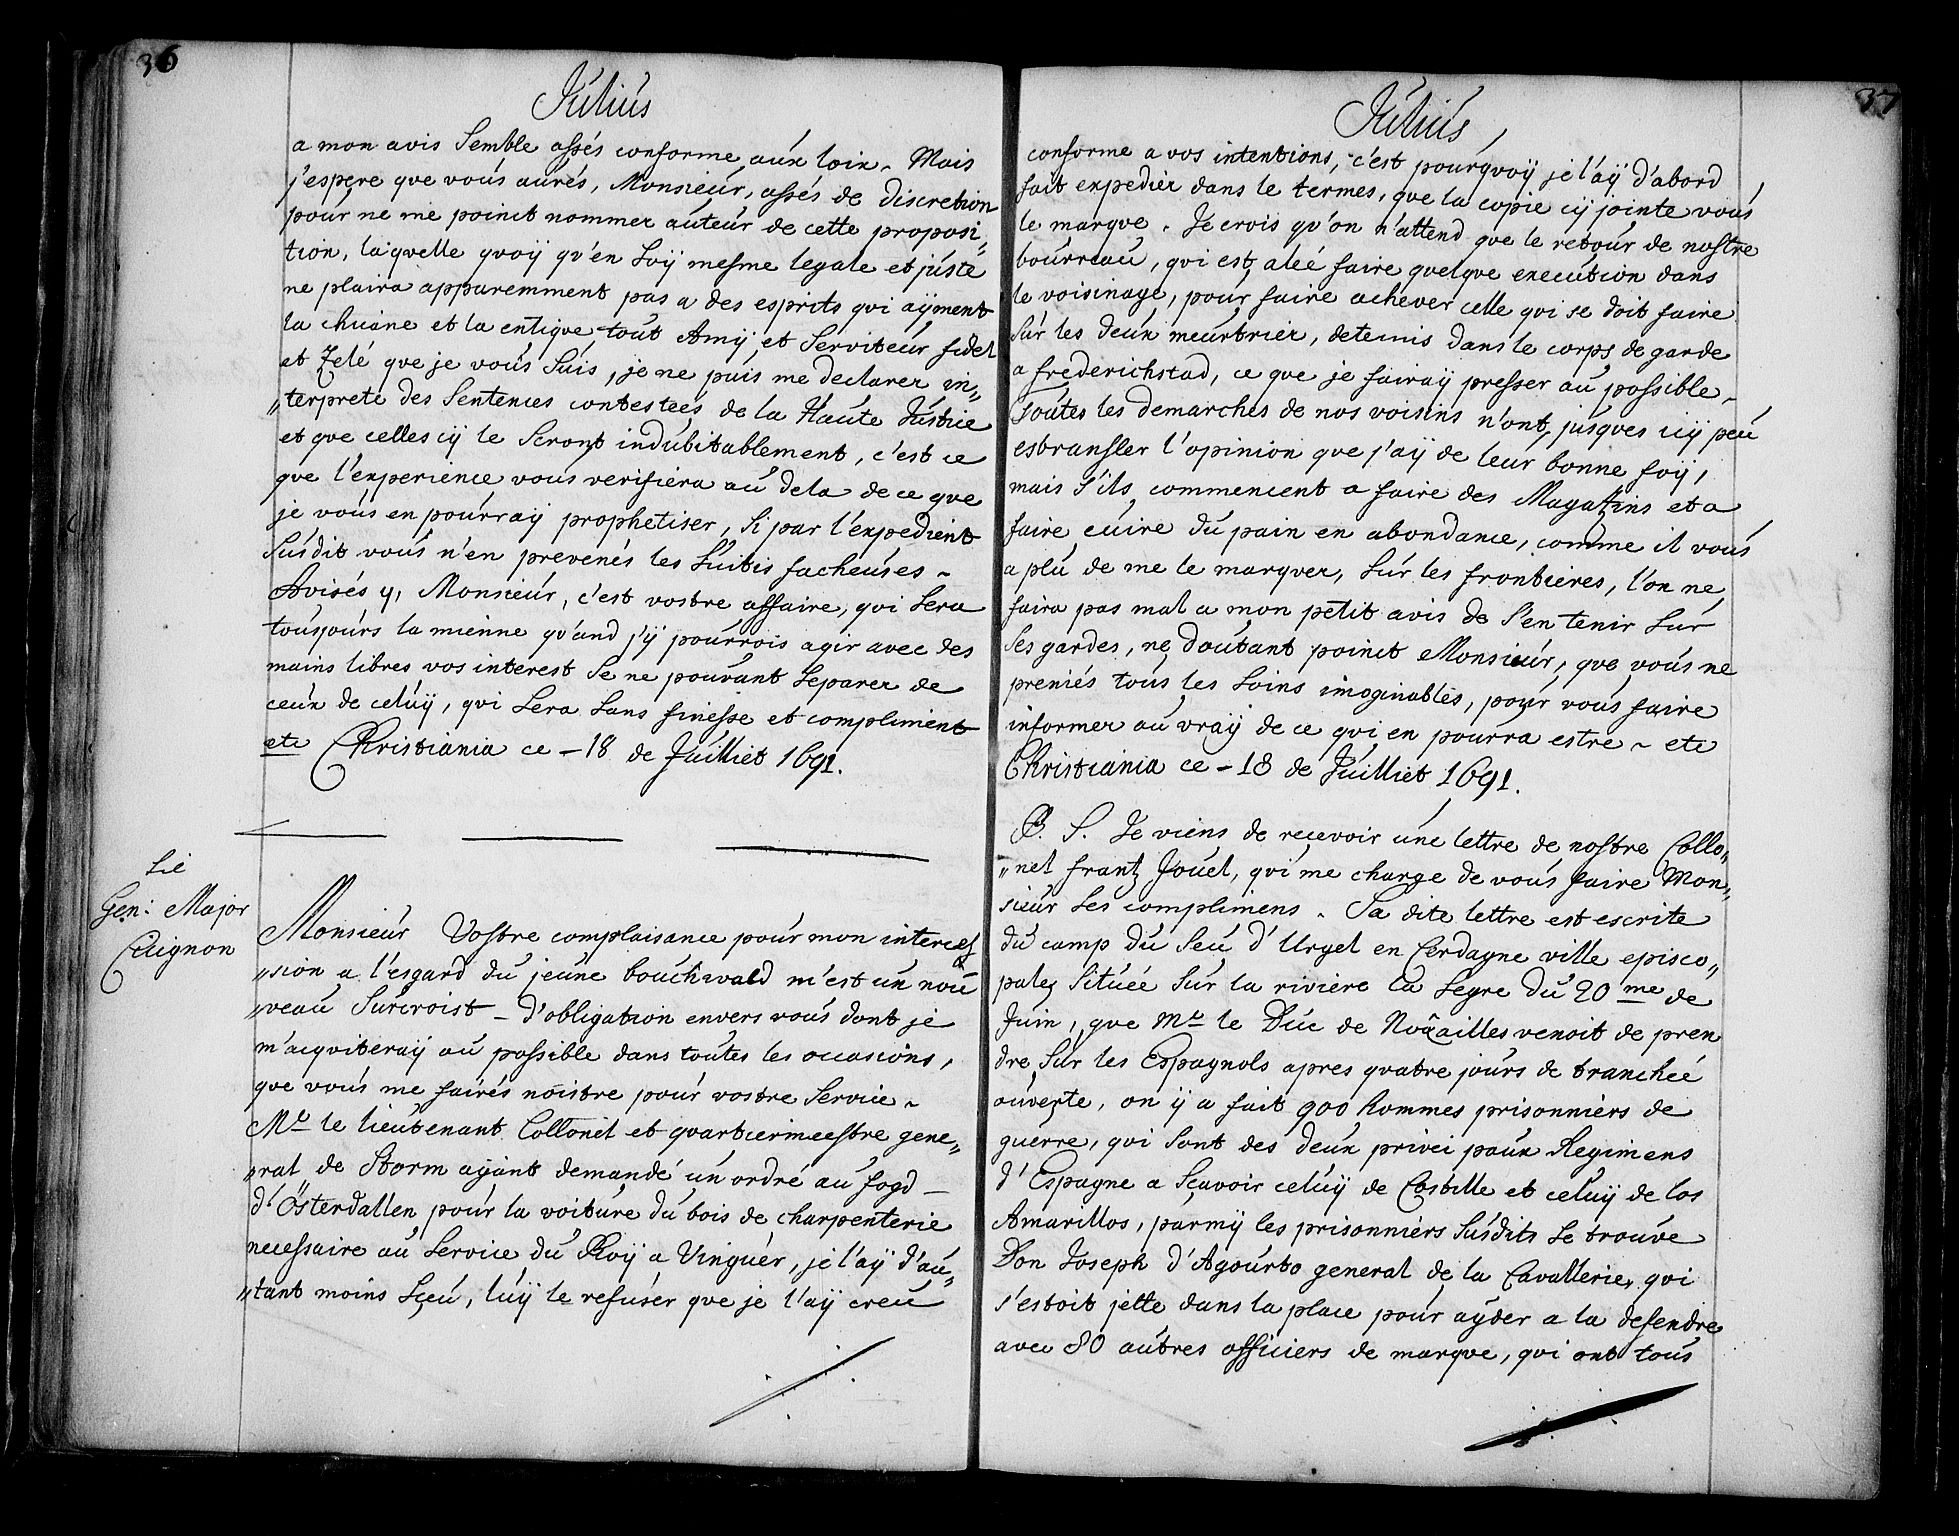 36
Julius
a mon avis Semble assés conforme aux loix. Mais
j'espere que vous aurés, Monsieur, assés de discretion
pour ne me poinct nommer auteur de cette proposi„
tion, laquelle quoÿ qu'en Soÿ mesme legale et juste
ne plaira apparemment pas a des esprits qui aÿment
la chicane et la critique, tout Amÿ et Serviteur fidel
et Zelé que je vous Suis, je ne puis me declarer in„
„terprete des Sentences contesteés de la Haute Justice
et que celles cÿ le Seront indubitablement, c'est ce
que l'experience vous verifiera au dela de ce que
je vous en pourraÿ prophetiser, Si par l'expedient
Susdit vous n'en prevenés les Suitis facheuses ~
Avisés y, Monsieur, c'est vostre affaire, qui Sera
tousjours la mienne qu'and j'ÿ pourrois agir avec des
mains libres vos interest Se ne pouvant Separer de
ceux de celuÿ, qui Sera Sans finesse et compliment
etc Christiania ce - 18 de Juilliet 1691.
Le
Gen: Major
Cuignon
Monsieur Vostre complaisance pour mon interces
„sion a l'esgard du jeune bouchwald m'est un nou
„veau Surcroist - d'obligation envers vous dont je
m'acquiteraÿ au possible dans toutes les occasions,
que vous me fairés noistre pour vostre Service ~
Mr le lieutenant Collonel et quartiermeestre gene„
„ral de Storm aÿant demandé un ordre au fogd -
d'Österdallen pour la voiture du bois de charpenterie
necessaire au Service du Roÿ a Vinguer, je l'aÿ d'au„
„tant moins Sçeu, luÿ le refuser que je l'aÿ creu
37
Julius
conforme a vos intentions, c'est pourquoÿ je l'aÿ d'abord
fait expedier dans le termes, que la copie cÿ jointe vous
le marque. Je crois qu'on n'attend que le retour de nostre
bourreau, qui est aleé faire quelque execution dans
le voisinage, pour faire achever celle qui se doit faire
Sur les deux meurtrier, detenus dans le corps de garde
a frederichstad, ce que je fairaÿ presser au possible ~
Toutes les demarches de nos voisins n'ont jusques icÿ peu
esbransler l'opinion que j'aÿ de leur bonne foÿ,
mais S'ils commencent a faire des Magazins et a
faire cuire du pain en abondance, comme il vous
a plu de me le marquer, Sur les frontieres, l'on ne
faira pas mal a mon petit avis de S'en tenir Sur
Ses gardes, ne doutant poinct Monsieur, que vous ne
preniés tous les Soins imaginables, pour vous faire
informer au vraÿ de ce qui en pourra estre ~ etc
Christiania ce - 18 de Juilliet 1691.
P. S. Je viens de recevoir une lettre de nostre Collo„
„nel frantz Jouel, qui me charge de vous faire Mon„
sieur Ses complimens. Sa dite lettre est escrite
du camp du Seu d'Urgel en Cerdagne ville episco„
pale, Situeé Sur la riviere la Segre du 20me de
Juin, que Mr le Duc de Noüailles venoit de pren
dre Sur les Espagnols apres quatre jours de trancheé
ouverte, on ÿ a fait 900 hommes prisonniers de
guerre, qui Sont des deux princi paux Regimens
d'Espagne a Sçavoir celuÿ de Castille et celuÿ de los
Amarillos, parmÿ les prisonniers Susdits Se trouve
Don Joseph d'Agourto general de la Cavallerie, qui
s'estoit jette dans la place pour ayder a la defendre
avec 80 autres officiers de marque, qui ont tous